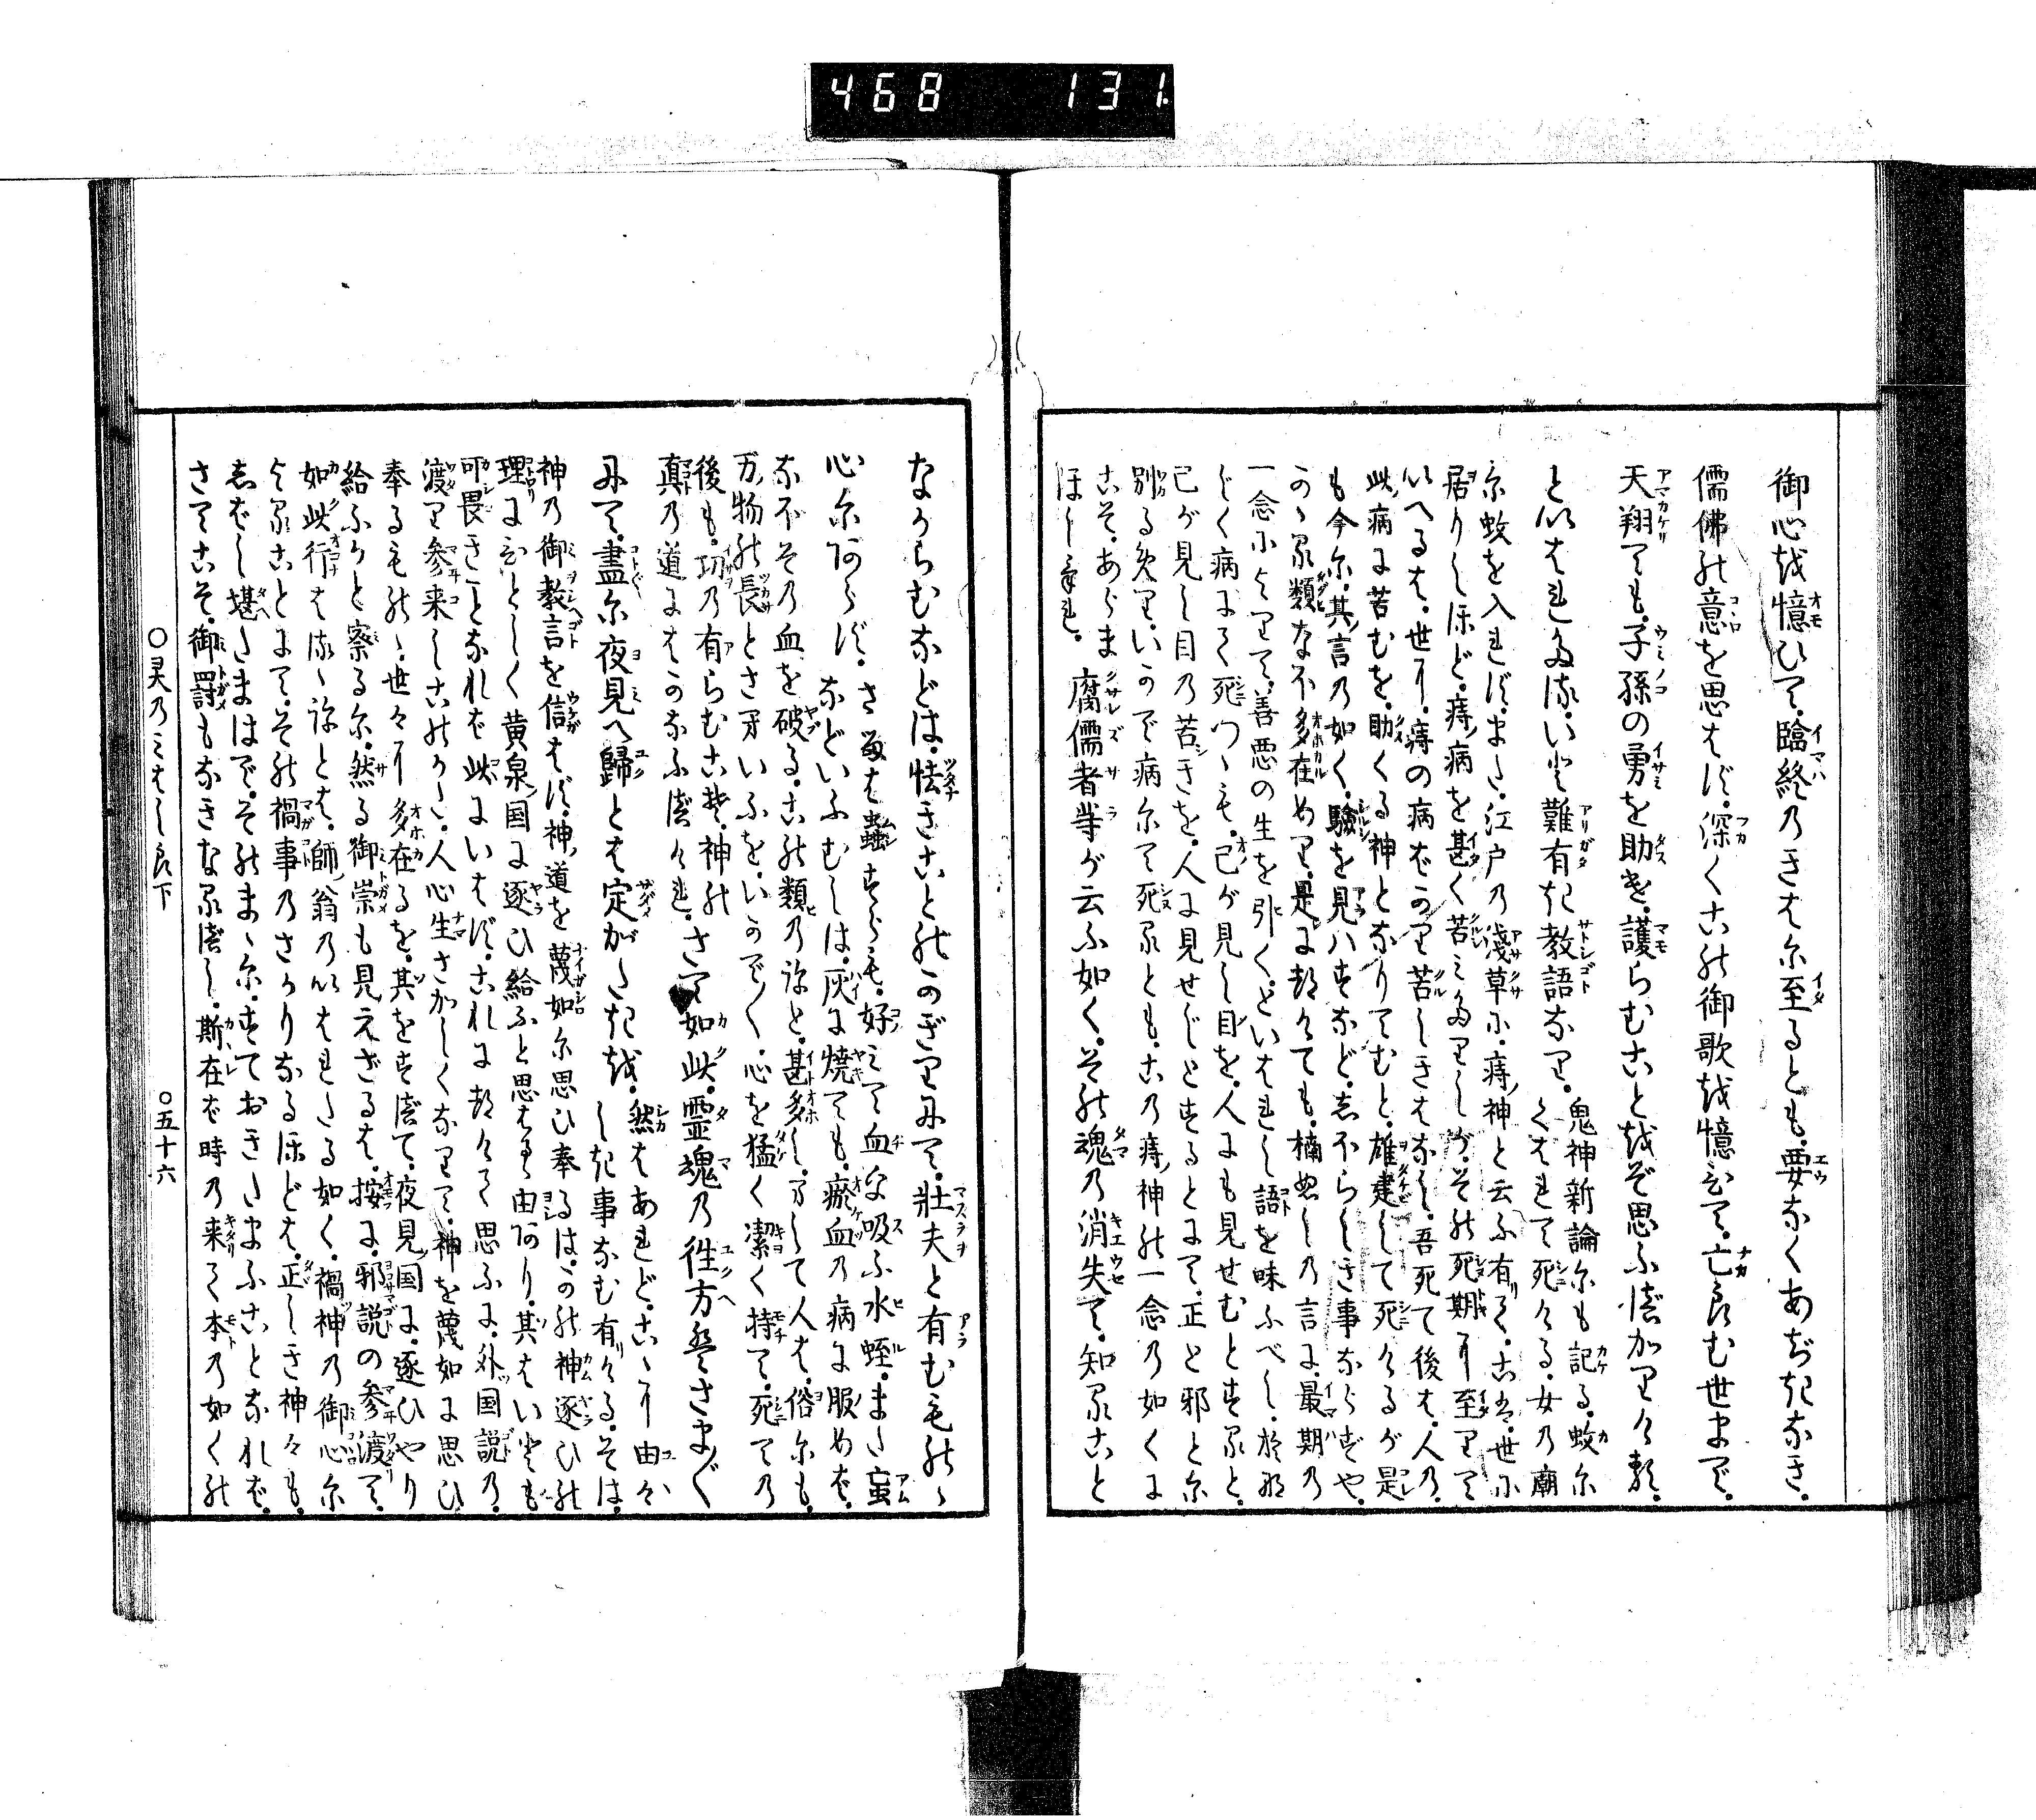 468 131
御心を憶ひて。臨終のきはに至るとも。要なくあぢきなき。
儒佛の意を思はず。深くこの御歌を憶ひて。亡らむ世まで。
天翔ても。子孫の勇を助き。護らむことをぞ思ふべかりける。
といはれたる。いと難有き教語なり。鬼神新論にも記る。蚊に
くはれて死ける。女の廟
に蚊を入れず。また江戸の淺草に。痔神と云ふ有て。こは。世に
居りしほど。痔病を甚く苦みたりしが。その死期に至りて
いへるは。世に痔の病ばかり苦しきはなし。吾死て後は。人の
此病に苦むを。助くる神となりてむと。雄建して死けるが是
も今に。其言の如く。驗を見はすなど。しからしき事ならずや。
かゝる類なほ多在めり。是に就ても。楠ぬしの言に。最期の
一念によりて。善悪の生を引く。といはれし語を味ふべし。
じく病にて死つゝも。己が見し目を。人にも見せむとすると。
己が見し目の苦きを。人に見せじとするとにて。正と邪とに
別るめり。いかで病にて死るとも。この痔神の一念の如くに
こそ。あらま
ほしけれ。腐儒者等が云ふ如く。その魂の消失て。知ることと
なからむなどは。怯きことのかぎりにて。壮夫と有むものゝ
心にあらず。さるは蟲すらも。好みて血を吸ふ水蛭。また蝱
などいふむしは。灰に燒ても。瘀血の病に服めば。
なほその血を破る。この類のもの。甚多し。まして人は。俗にも。
万物の長とさへいふを。いかで〳〵。心を猛く潔く持て。死ての
後も。功の有らむこそ。神の
真の道にはかなふべけれ。さて如此。靈魂の往方はさま〴〵
にて。盡に夜見へ歸とは定がたきを。然はあれど。こゝに由々
しき事なむ有ける。そは。
神の御教言を信はず。神道を蔑如に思ひ奉るは。かの神逐ひの
理にひとしく黄泉国に逐ひ給ふと思はるゝ由あり。其はいとも
可畏きことなれば此にいはず。これに就けて思ふに。外国説の。
渡り参来しこのかた。人心生さかしくなりて。神を蔑如に思ひ
奉るものゝ。世々に多在るを。其をすべて。夜見国に。逐ひやり
給ふかと察るに。然る御崇も見えざるは。按に。邪説の参渡て。
如此行はるゝものとは。師翁のいはれたる如く。禍神の御心に
よることにて。その禍事のさかりなるほどは。正しき神々も。
しばし堪たまはで。そのまゝに。すておきたまふことなれば。
さてこそ。御罸もなきなるべし。斯在ば時の来て本の如くの
〇灵乃みはしら下 〇五十六